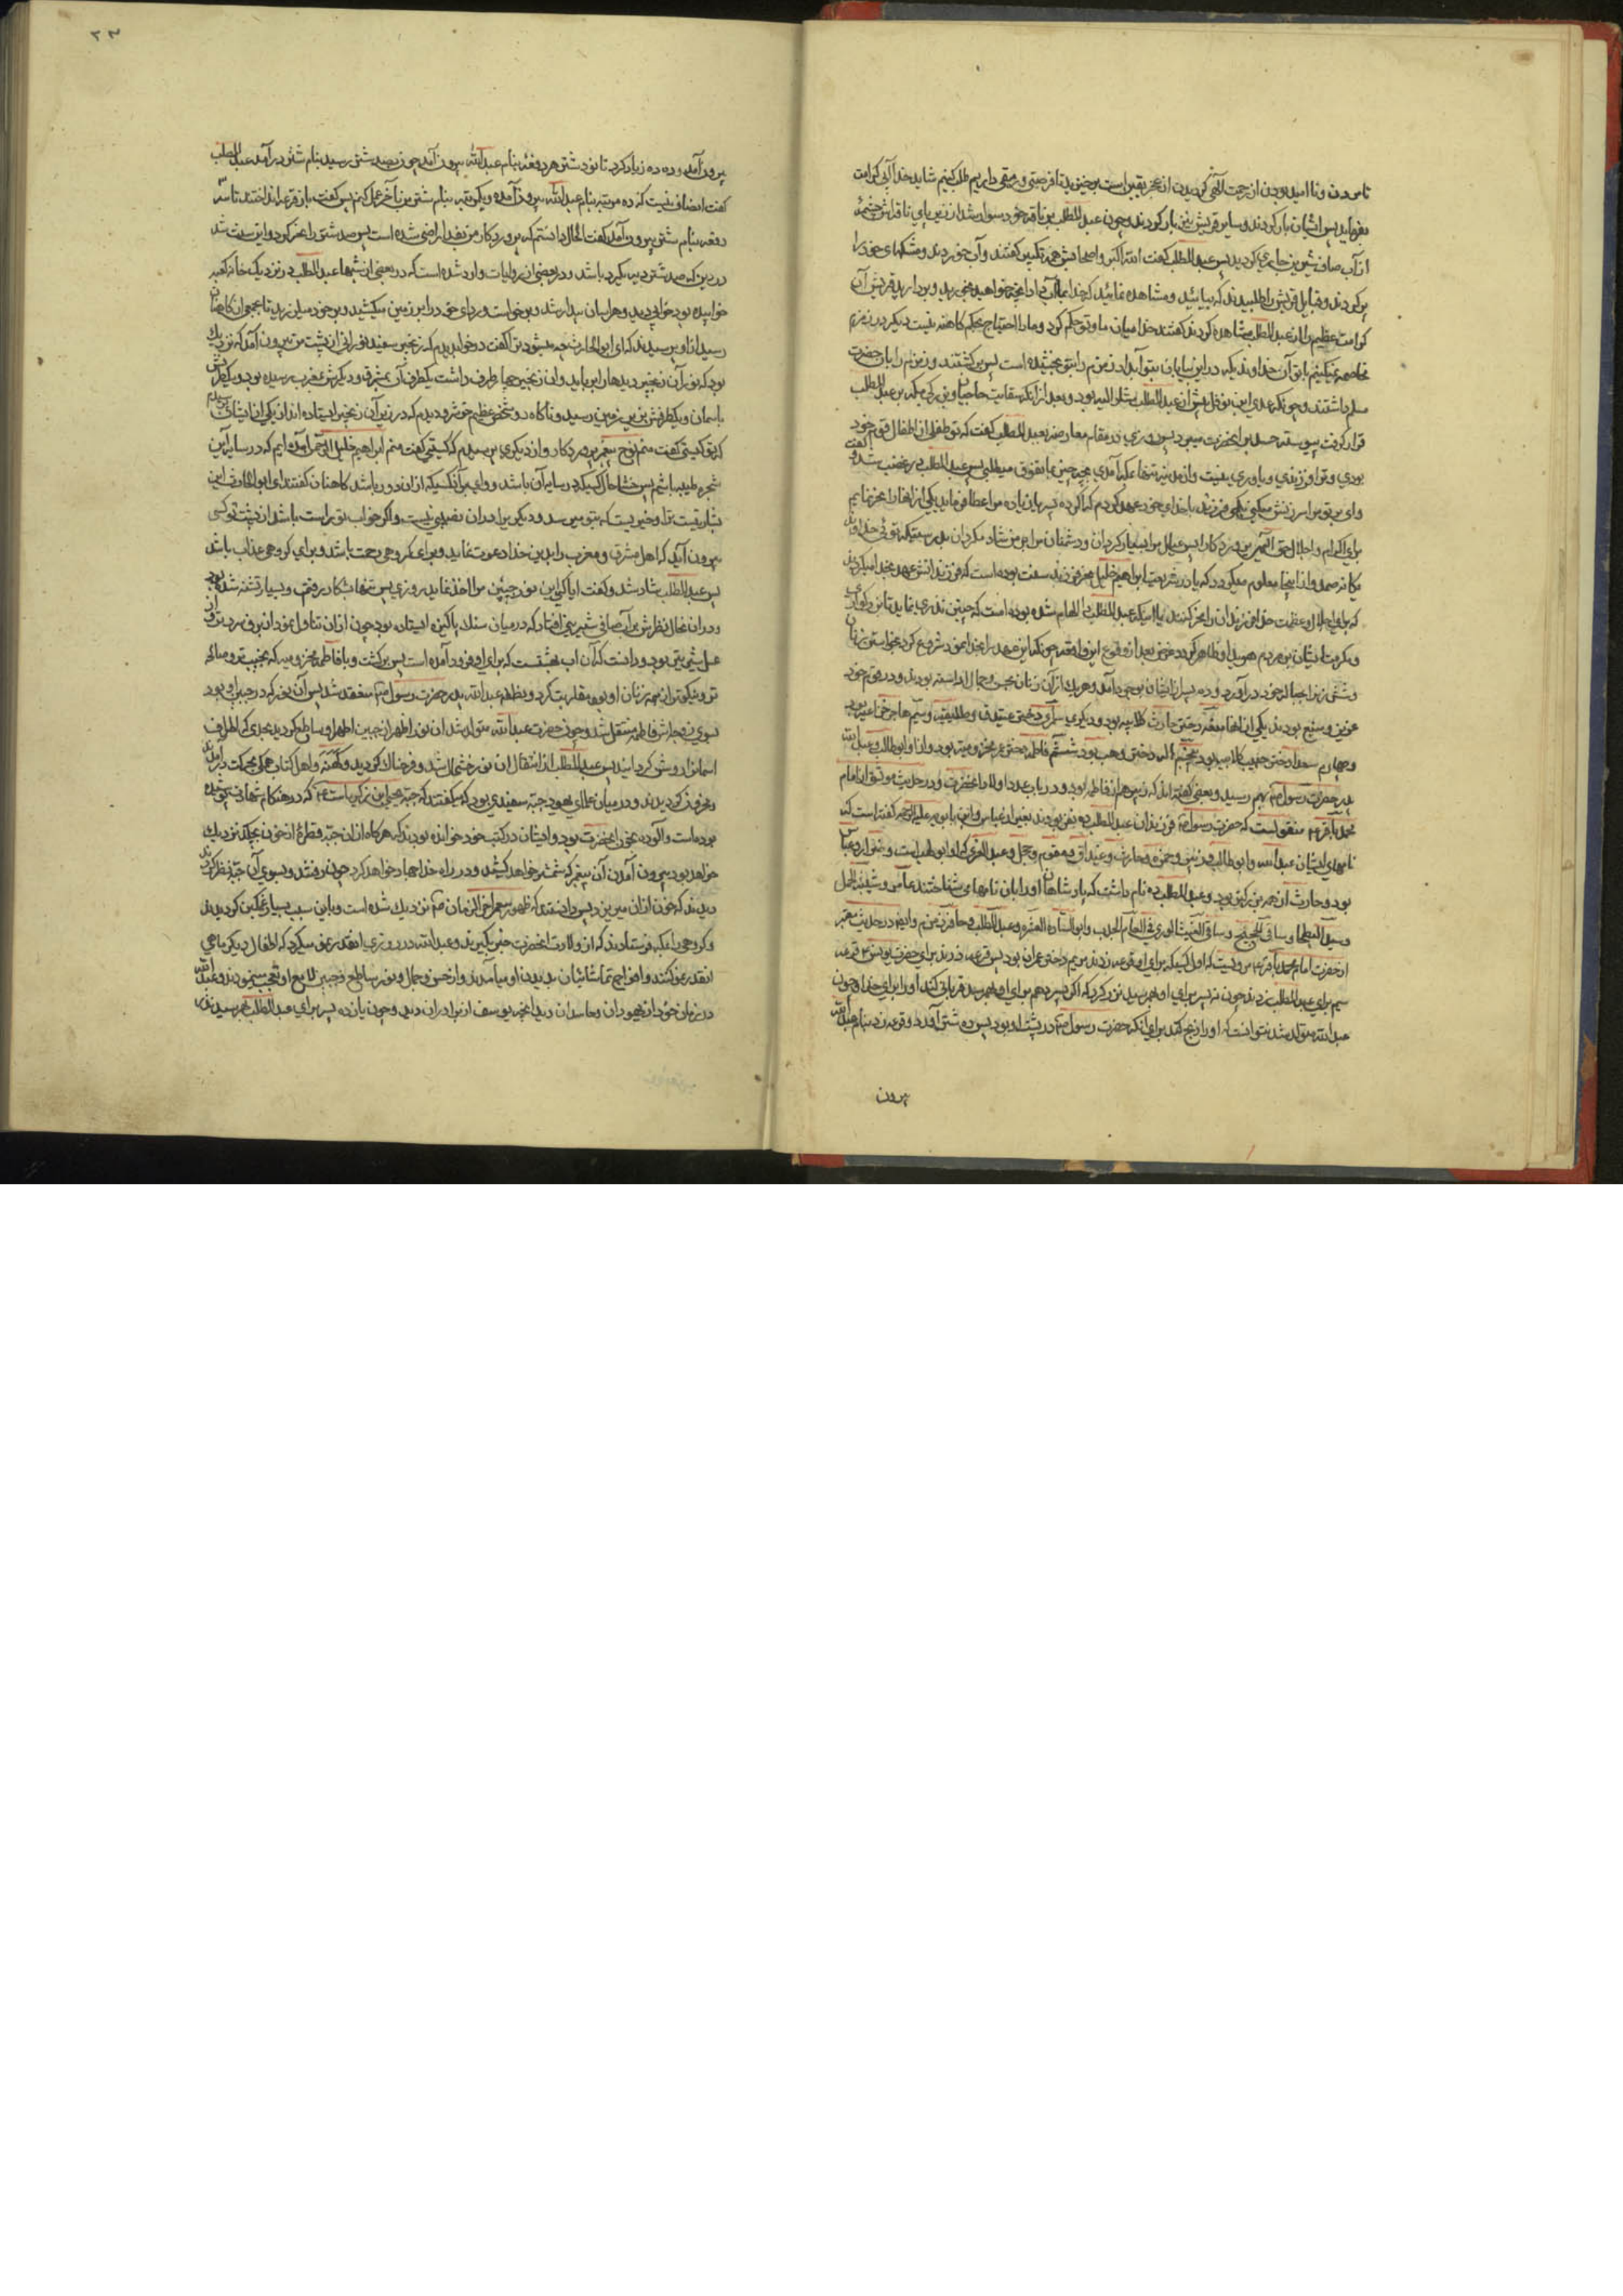 تا مردن و ناامید بودن از رحمت الهی کردیدن از عجز یقین است برخیزید تا فرصتی و رمقی داریم طلب کنیم شاید خدا آبی کرامت
بفرماید پس ایشان بار کردند و سایر قریش نیز بار کردند و چون عبد المطلب بر ناقه خود سوار شد از زیر پای ناقه اش چشمهٔ
از آب صاف شیرین جاری کردید پس عبد المطلب کفت الله اکبر و اصحابش همه تکبیر کفتند و آب خوردند و مشکهای خود را
پر کردند و قبایل قریش را طلبیدند که بیائید و مشاهده نمائید که خدا بما آب داد آنچه خواهید بخورید و بردارید قریش آن
کرامت عظیم را از عبد المطلب مشاهده کردند کفتند خدا میان ما و تو حکم کرد و ما را احتیاج بحکم کاهنه نیست دیکر در زمزم
مخاصمه نمیکنیم با تو آن خداوندیکه در این بیابان بتو آب داد زمزم را بتو بخشیده است پس برکشتند و زمزم را بان حضرت
مسلم داشتند و چونکه عدی ابن نوفل پیش از عبد المطلب
قرار کرفت پیوسته حسد بر آنحضرت میبرد پس روزی در مقام معارضه بعبد المطلب کفت که تو طفلی از اطفال قوم خود
بودی و ترا فرزندی و یاوری نیست
وای بر تو مرا سرزنش میکنی بکمی فرزند با خدای خود عهد کردم که اکر ده پسر یا زیاده مرا عطا فرماید یکی از انها را نحر نمایم
برای اکرام و اجلال حق
مکانه صمد و از اینجا معلوم میکردد که یا در شریعت ابراهیم خلیل نحر فرزند سنت بوده است
که برای اجلال و عظمت خدا فرزندان را نحر کنند یا اینکه عبد المطلب را الهام شده بوده است که چنین نذری بنماید
و شش زن را بحباله خود در آورد و ده پسر از ایشان بوجود آمد و هر یک از آن زنان بحسن و جمال اراسته بودند و در قوم خود
عزیز و منیع بودند یکی از انها
پدر حضرت رسول ص بهم رسید و بعضی کفته اند که زبیر هم از فاطمه بود و در باب عدد اولاد انحضرت و در حدیث موثق از امام
محمد باقر ع منقولست که حضرت رسول ص فرزندان عبد المطلب ده نفر بودند بغیر از عباس و ابن بابویه علیه الرحمه کفته است که
نامهای ایشان عبد الله و ابو طالب و زبیر و حمزه و حارث و غیداق و مقوم و حجل و عبد العزی که او ابو لهب است و ضرار و عباس
بود و حارث از همه بزرکتر بود و عبد المطلب ده نام داشت که پادشاهان او را بان نامها می شناختند عامر و شیبة الحمل
و سید البطحا و ساقی الحجیج و ساقی الغیث
از حضرت امام محمد باقر ع مرویست که اول کسیکه برای او قرعه زدند مریم دختر عمران بود پس قرعه زدند برای حضرت یونس قرعه
سیم برای عبد المطلب زدند چون نه پسر برای او بهم رسید نذر کرد که اکر پسر دهم برای او بهم رسد قربانی کند او را برای خدا و چون
عبد الله متولد شد نتوانست که او را ذبح کند برای آنکه حضرت رسول ص در پشت او بود پس ده شتر آورد و قرعه زد بنام عبد الله
بیرون
۲۳
بیرون آمد و ده ده زیاد کرد تا نود شتر هر دفعه بنام عبد الله بیرون آمد چون بصد شتر رسید بنام شتر در آمد عبد المطلب
کفت انصاف نیست که ده مرتبه بنام عبد الله بیرون آمده و یکمرتبه بنام شتر من بآخر عمل کنم پس کفت باز قرعه انداختند تا سه
دفعه بنام شتر بیرون آمد کفت الحال دانستم که پروردکار من بفدا راضی شده است پس صد شتر را نحر کرد و این سنت شد
در دین که صد شتر دیه یکمرد باشد و در بعضی از روایات وارد شده است که در بعضی از شبها عبد المطلب در نزدیک خانه کعبه
خوابیده بود خوابی دید و هراسان بیدار شد و برخواست و ردای خود را بر زمین میکشید و بر خود میلرزید تا بمجمع کاهنان
رسید از او پرسیدند که ای ابو الحارث چه میشود ترا کفت در خواب دیدم که زنجیر سفید نورانی از پشت من بیرون آمد که نزدیک
بود که نور آن زنجیر دیدها را برباید و آن زنجیر چهار طرف داشت یکطرف آن بمشرق و دیکرش بمغرب رسیده بود و یکطرفش
باسمان و یکطرفش بزیر زمین رسید و ناکاه دو شخص عظیم خوشرو دیدم که در زیر آن زنجیر ایستاده اند از یکی از ایشان پرسیدم
که تو کیستی کفت منم نوح پیغمبر پروردکار و از دیکری پرسیدم که کیستی کفت منم ابراهیم خلیل الرحمن آمده ایم که در سایه این
شجره طیبه باشیم پس خوشا حال کسیکه در سایه آن باشد و وای بر آنکسیکه از ان دور باشد کاهنان کفتند ای ابو الحارث این
بشارتیست ترا و خیریست که بتو میرسد و دیکر برادران نصیبی نیست و اکر خواب تو راست باشد از پشت تو کسی
بیرون آید که اهل مشرق و مغرب را بدین خدا دعوت نماید و برای کروهی رحمت باشد و برای کروهی عذاب باشد
پس عبد المطلب شاد شد و کفت ایا که این نور جبین مرا اخذ نماید روزی پس تنها بشکار رفتم و بسیار تشنه شده بود
و در ان حال نظرش بر آب صافی شیرینی افتاد که در میان سنک پاکیزه ایستاده بود چون از ان تناول نمود از برف سردتر و از
عسل شیرین تر بود و دانست که آن اب بهشتست که برای او فرود آمده است پس برکشت و با فاطمه مخزومیه که نجیبتر و صالح
تر و نیکوتر از همه زنان او بود مقاربت کرد و بنطفه عبد الله پدر حضرت رسول ص منعقد شد پس آن نور که در جبین او بود
بسوی زوجه اش فاطمه منتقل شد و چون حضرت عبد الله متولد شد ان نور اطهر از جبین اطهر او ساطع کردید بحدی که اطراف
اسمانرا روشن کردانید پس عبد المطلب از انتقال ان نور خوشحال شد و فرحناک کردید و کهنه و اهل کتاب همکی بحرکت در آمدند
و محزون کردیدند و در میان علمای یهود جبه سفیدی بود که میکفتند که جبه یحیی ابن زکریاست ع که در هنکام شهادت پوشیده
بوده است و آلوده بخون انحضرت بود و ایشان در کتب خود خوانده بودند که هرکاه از ان جبه قطرهٔ از خون بچکد نزدیک
خواهد بود بیرون آمدن آن پیغمبر که شمشیر خواهد کشید و در راه خدا جهاد خواهد کرد چون رفتند و بسوی آن جبه نظر کردند
دیدند که خون از ان میریزد پس دانستند که ظهور پیغمبر آخر الزمان ص نزدیک شده است و باین سبب بسیار غمکین کردیدند
و کروهی را بمکه فرستادند که از ولادت انحضرت خبر بکیرند و عبد الله در روزی انقدر نمو میکرد که اطفال دیکر ماهی
انقدر نمو کنند و افواج تماشائیان بدیدن او میامدند و از حسن و جمال و نور ساطع و جبین لامع او تعجب مینمودند و عبد الله
در زمان خود از یهودان و حاسدان دید آنچه یوسف از برادران دید و چون یازده پسر برای عبد المطلب بهم رسید نذر